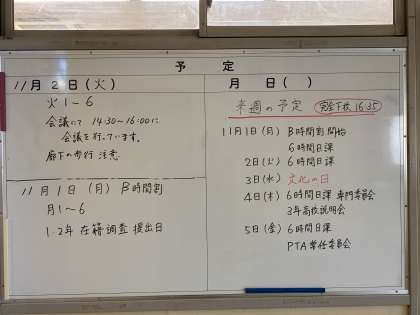 予定
11月2日(火)
火1~6
会議にて 14:30~16:00に
会議を行っています。
廊下の歩行 注意
11月1日(月) B時間割
月1~6
1・2年 在籍調査 提出日
月 日( )
来週の予定 完全下校 16:35
11月1日(月) B時間割 開始
6時間日課
2日(火) 6時間日課
3日(水) 文化の日
4日(木) 6時間日課 専門委員会
3年高校説明会
5日(金) 6時間日課
PTA常任委員会